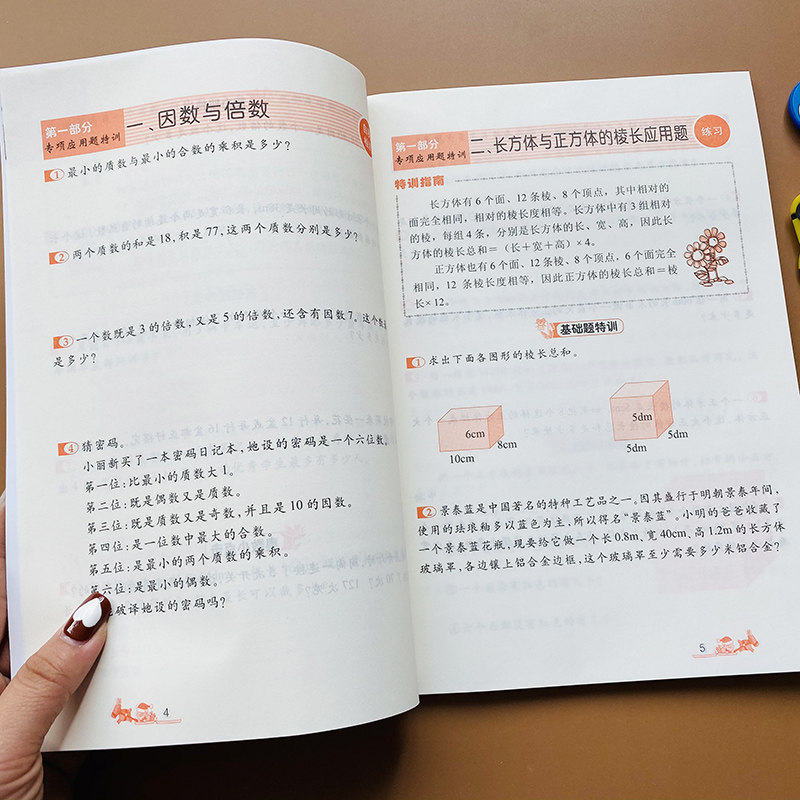 第一部分
专项应用题特训
一、因数与倍数
1 最小的质数与最小的合数的乘积是多少?
2 两个质数的和是18,积是77,这两个质数分别是多少?
3 一个数既是3的倍数,又是5的倍数,还含有因数7。这个数
是多少?
4 猜密码。
小丽新买了一本密码日记本,她设的密码是一个六位数。
第一位:比最小的质数大1。
第二位:既是偶数又是质数。
第三位:既是质数又是奇数,并且是10的因数。
第四位:是一位数中最大的合数。
第五位:是最小的两个质数的乘积。
第六位:是最小的偶数。
破译她设的密码吗?
4
第一部分
专项应用题特训
二、长方体与正方体的棱长应用题
练习
特训指南
长方体有6个面、12条棱、8个顶点,其中相对的
面完全相同,相对的棱长度相等。长方体中有3组相对
的棱,每组4条,分别是长方体的长、宽、高,因此长
方体的棱长总和=(长+宽+高)×4。
正方体也有6个面、12条棱、8个顶点,6个面完全
相同,12条棱长度相等,因此正方体的棱长总和=棱
长×12。
基础题特训
1 求出下面各图形的棱长总和。
6cm
8cm
10cm
5dm
5dm
5dm
2 景泰蓝是中国著名的特种工艺品之一。因其盛行于明朝景泰年间,
使用的珐琅釉多以蓝色为主,所以得名“景泰蓝”。小明的爸爸收藏了
一个景泰蓝花瓶,现要给它做一个长0.8m,宽40cm,高1.2m的长方体
玻璃罩,各边镶上铝合金边框,这个玻璃罩至少需要多少米铝合金?
5